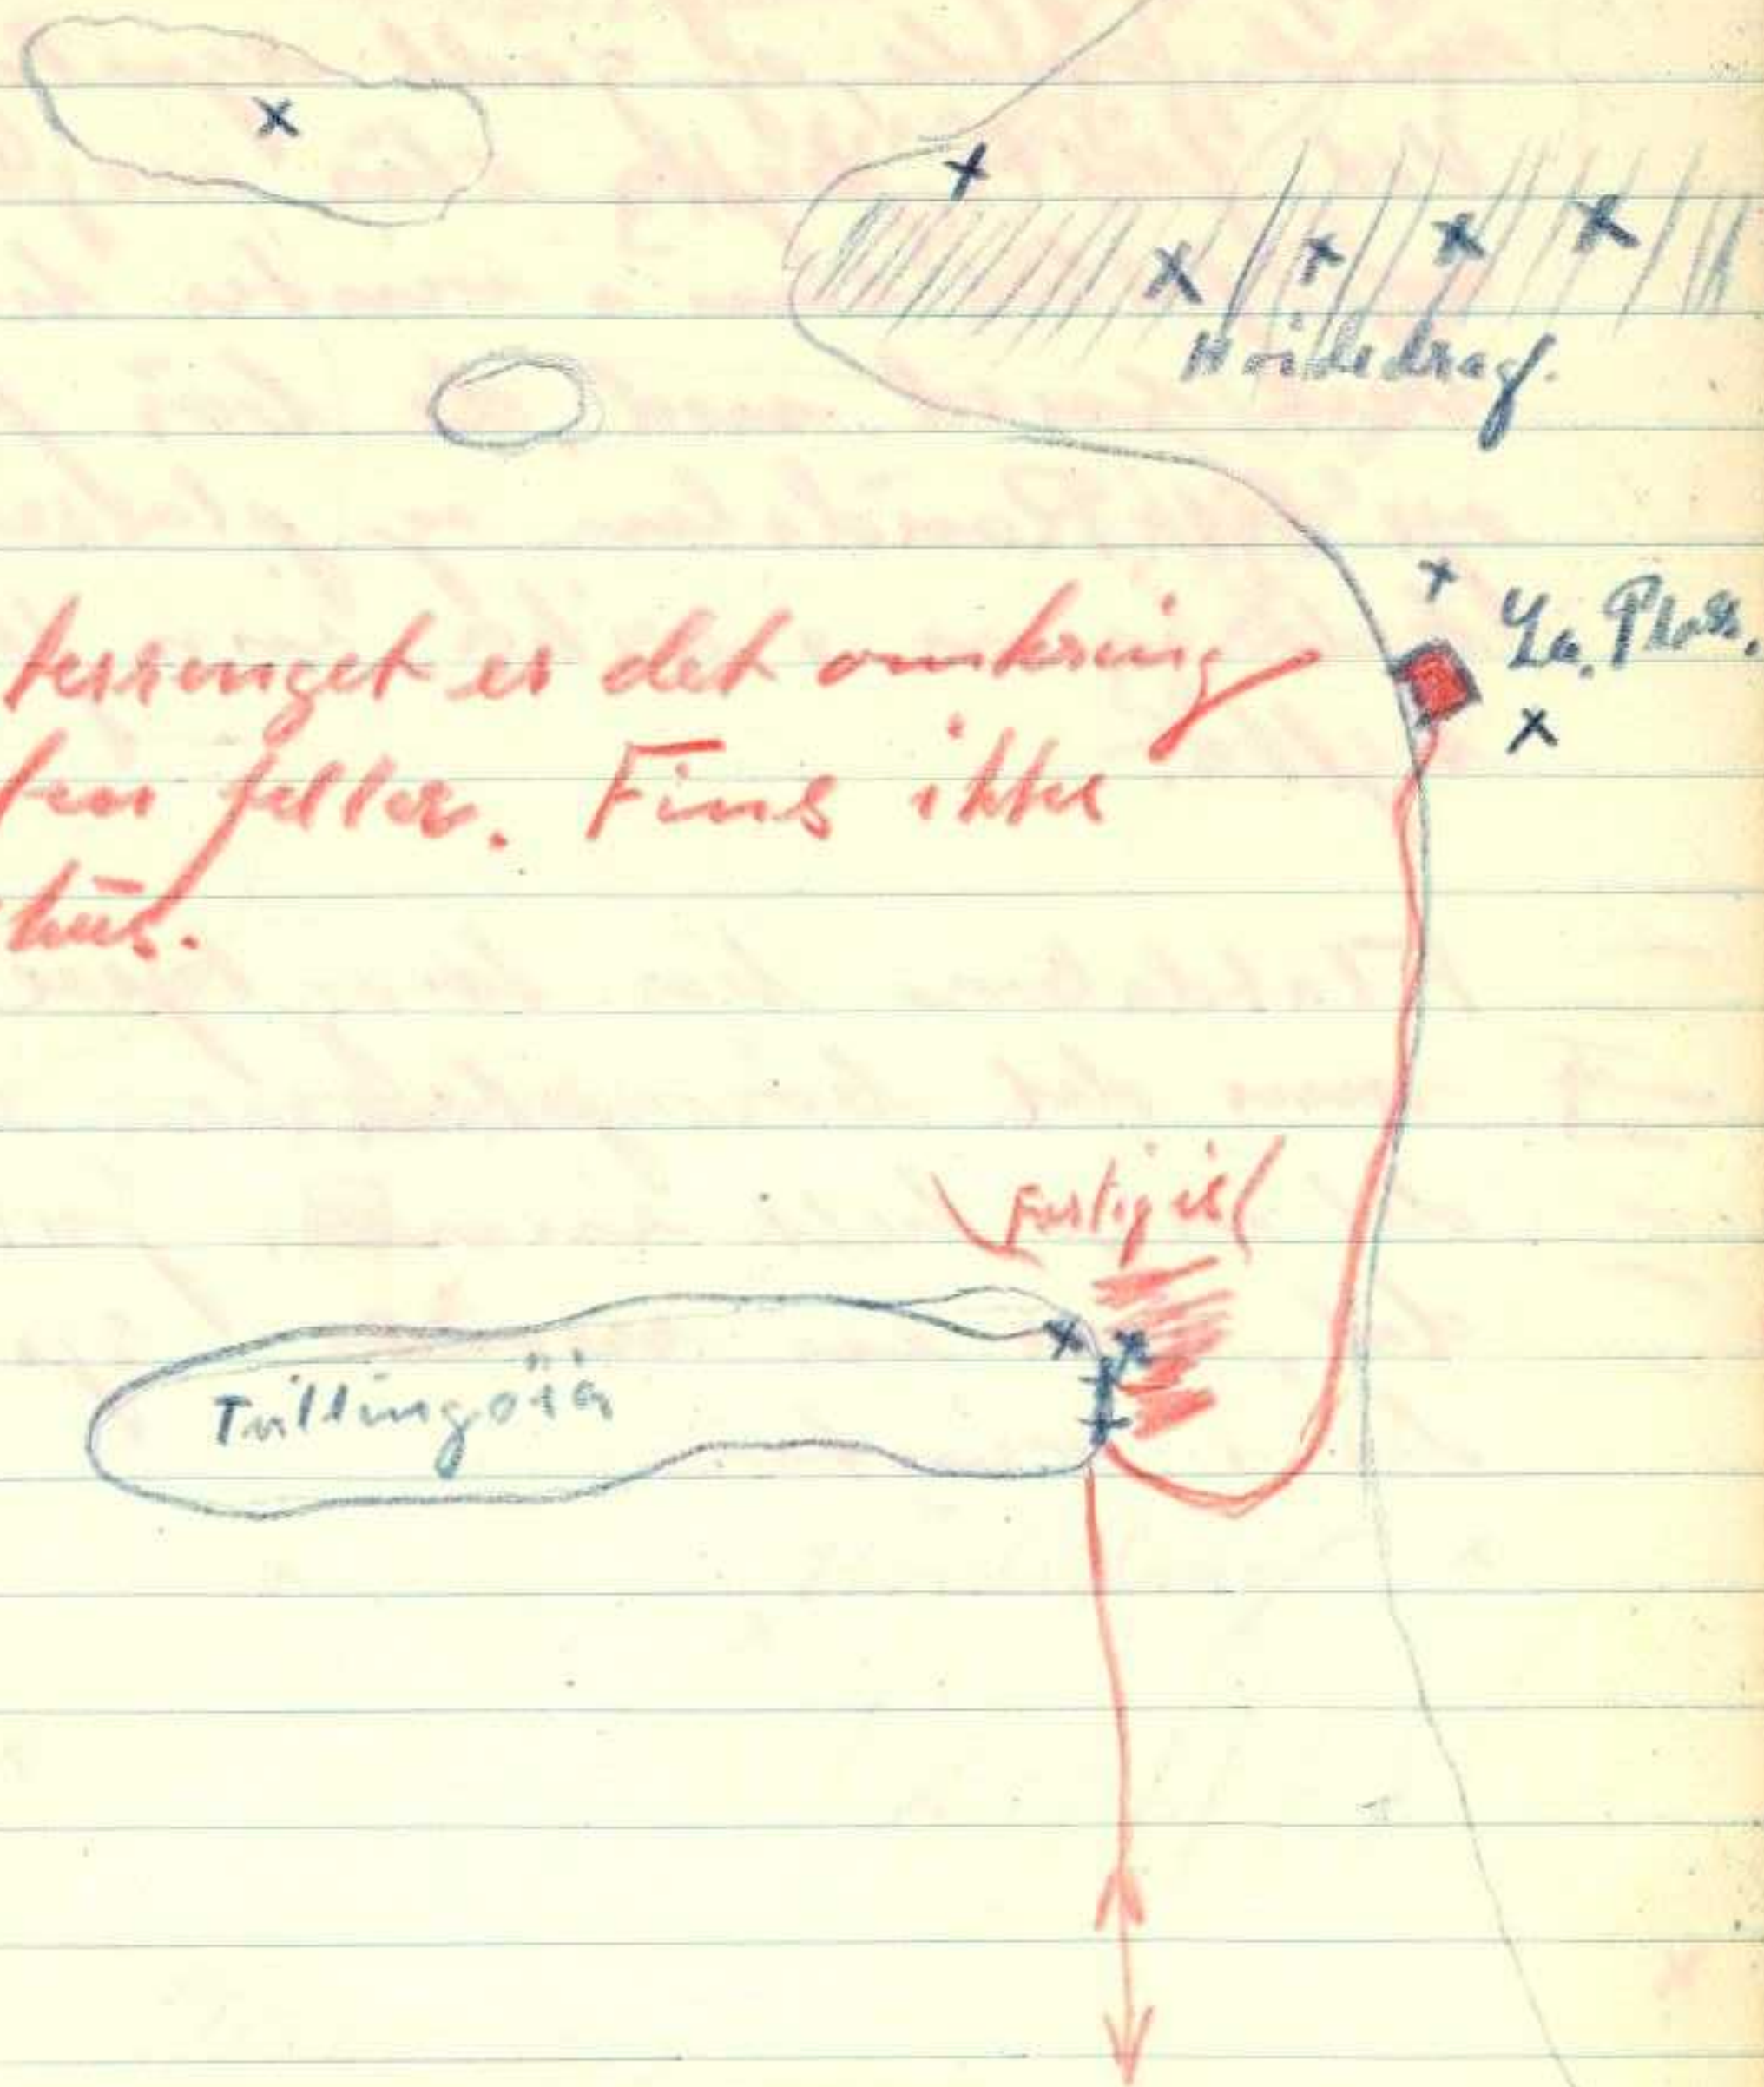 Høidedrag.
La. Plass.
terrenget er det omkring
feller. Fins ikke
hus.
farlig is
Tvillingöia